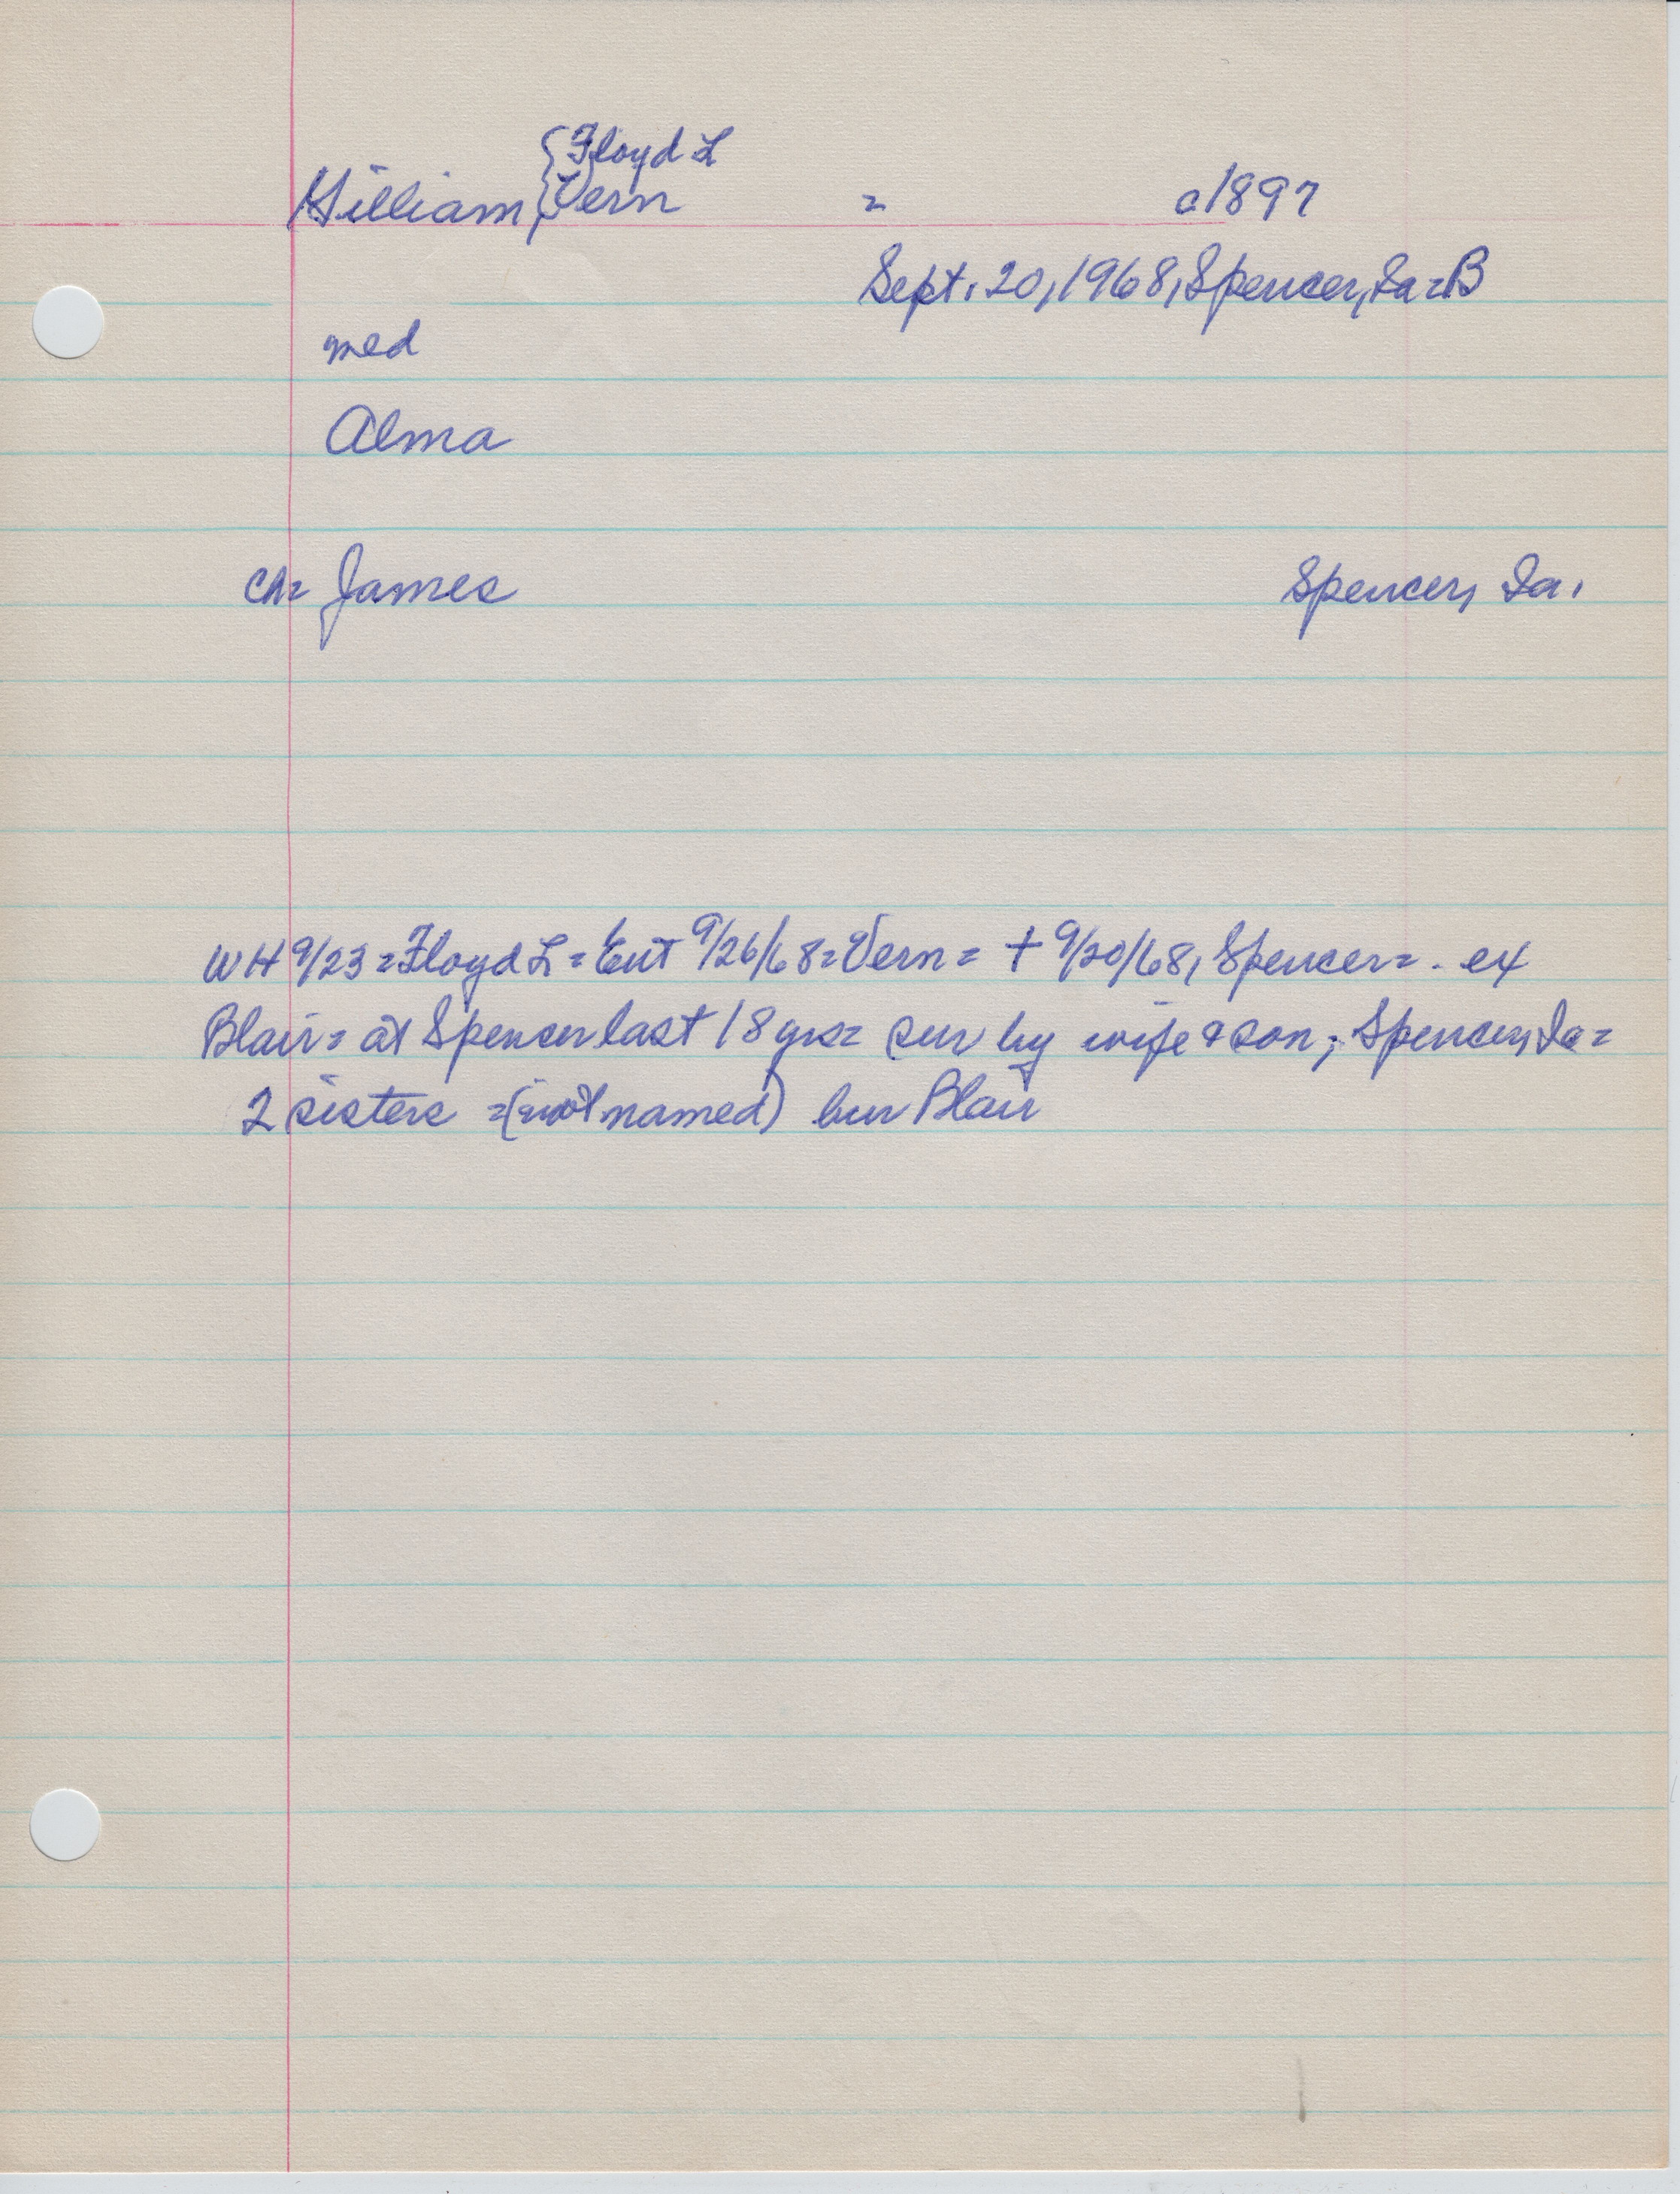 {Floyd L
William {Vern = c1897
Sept. 20, 1968, Spencer, Ia = B
med
Alma
ch = James Spencer, Ia.
WH 9/23 = Floyd L = Ent 9/26/68 = Vern = † 9/20/68, Spencer = . ex
Blair = at Spencer last 18 yrs = sur by wife & son; Spencer, Ia =
2 sisters = (not named) bur Blair